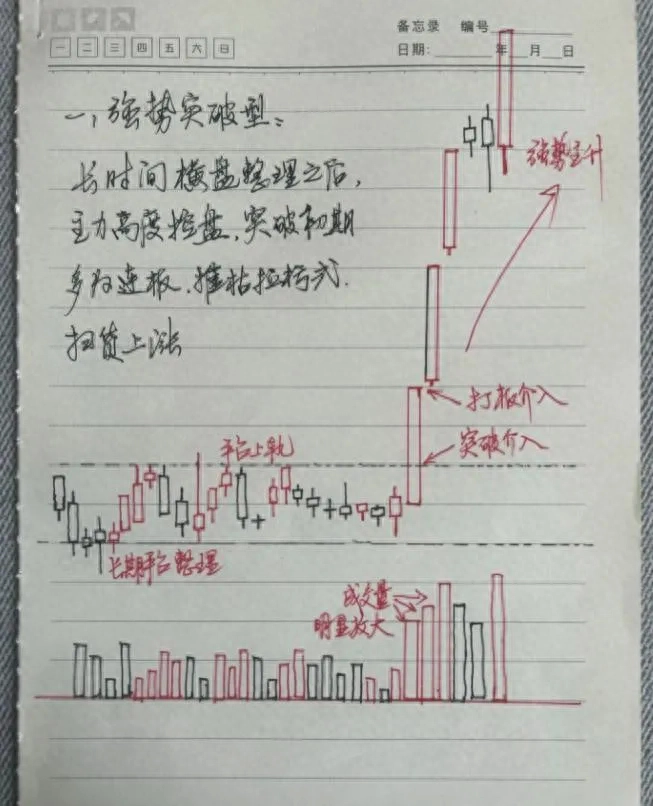 备忘录 编号
一 二 三 四 五 六 日
日期: 年 月 日
一、强势突破型:
长时间横盘整理之后,
主力高度控盘,突破初期
多为连板、推粘拉橇式
扫货上涨
强势主升
打板介入
突破介入
平台上轨
长期平台整理
成交量
明显放大